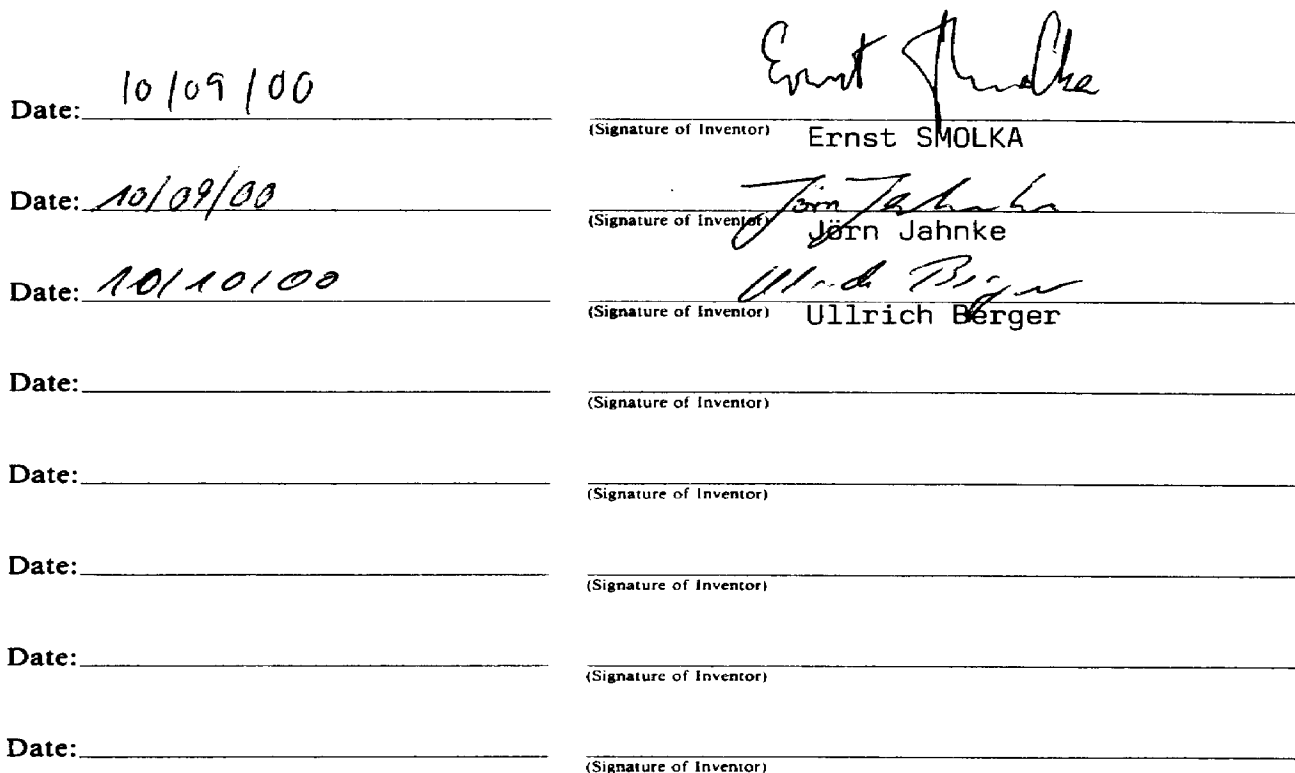 Date: 10/09/00 Ernst Smolka
(Signature of Inventor) Ernst SMOLKA
Date: 10/09/00 Jörn Jahnke
(Signature of Inventor) Jörn Jahnke
Date: 10/10/00 Berger
(Signature of Inventor) Ullrich Berger
Date:
(Signature of Inventor)
Date:
(Signature of Inventor)
Date:
(Signature of Inventor)
Date:
(Signature of Inventor)
Date:
(Signature of Inventor)